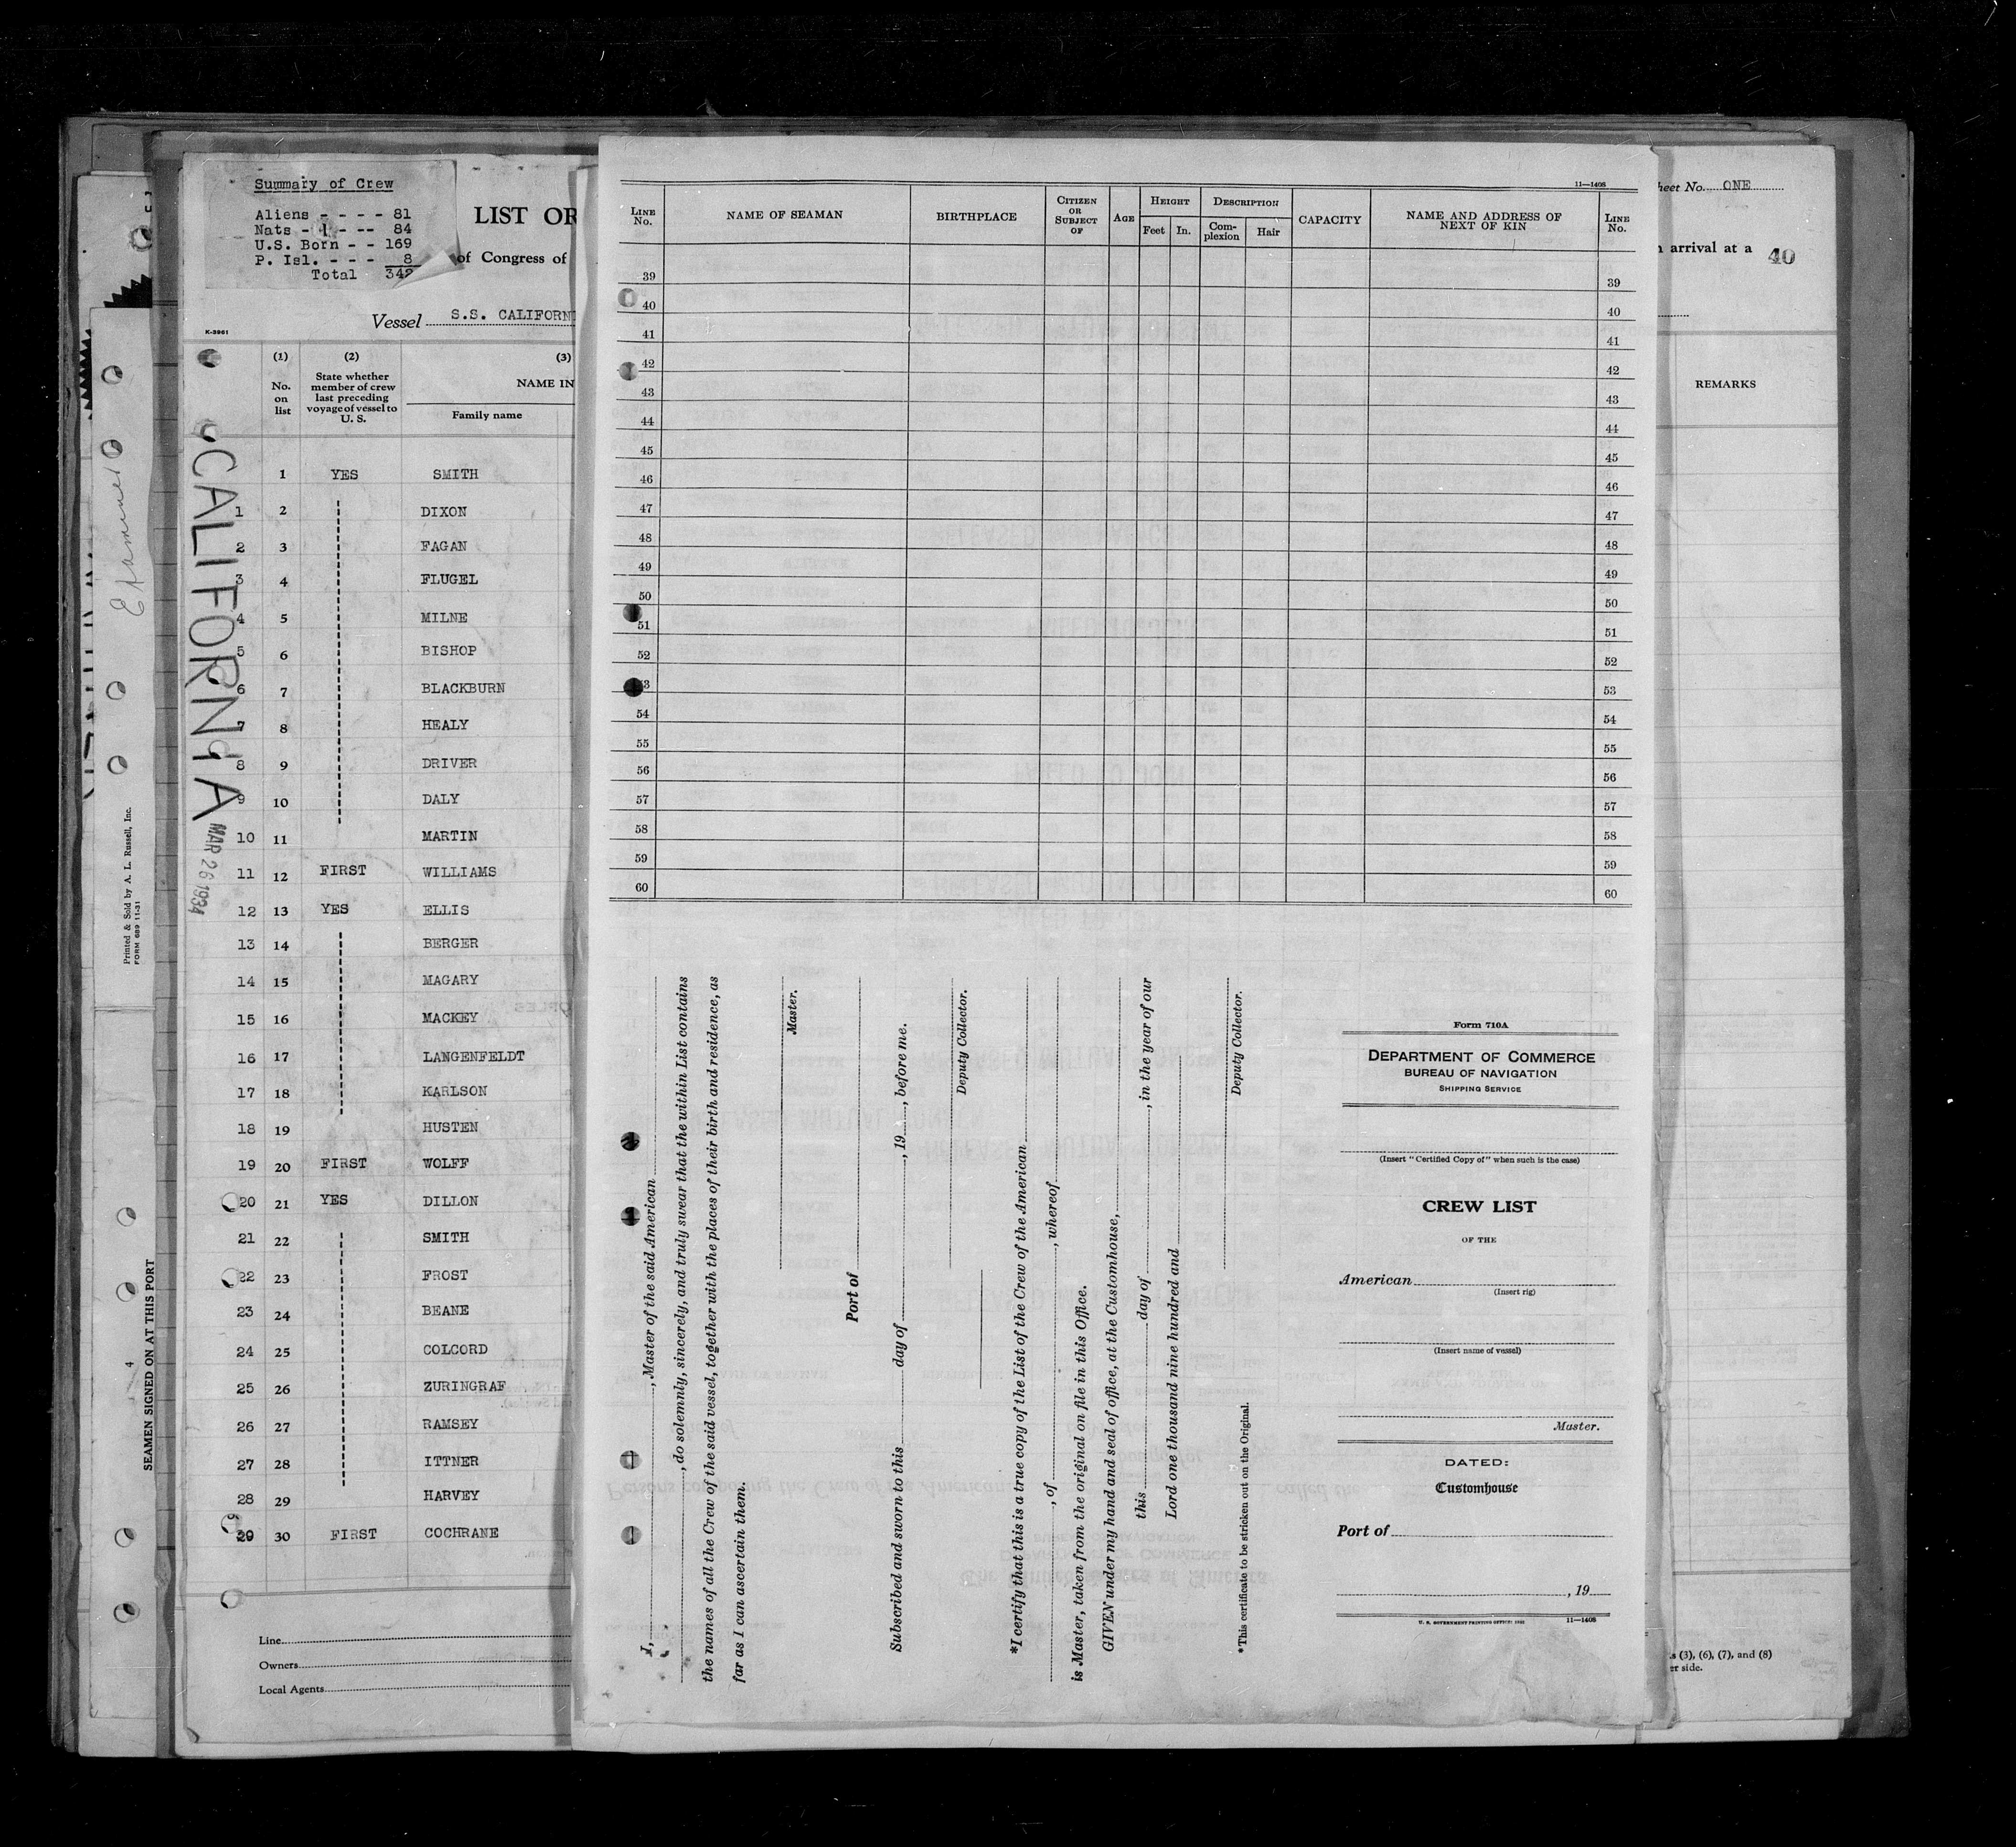 Summary of Crew
Aliens - - - - 81
Nats - 1 - -- 84
U.S. Born - - 169
P. Isl. - - - 8
Total 342
LIST OR
of Congress of
Vessel S.S. CALIFORNI
K-3961
(1) (2) (3)
No. on list
State whether member of crew last preceding voyage of vessel to U. S.
NAME IN
Family name
1 YES SMITH
1 2 DIXON
2 3 FAGAN
3 4 FLUGEL
4 5 MILNE
5 6 BISHOP
6 7 BLACKBURN
7 8 HEALY
8 9 DRIVER
9 10 DALY
10 11 MARTIN
11 12 FIRST WILLIAMS
12 13 YES ELLIS
13 14 BERGER
14 15 MAGARY
15 16 MACKEY
16 17 LANGENFELDT
17 18 KARLSON
18 19 HUSTEN
19 20 FIRST WOLFF
20 21 YES DILLON
21 22 SMITH
22 23 FROST
23 24 BEANE
24 25 COLCORD
25 26 ZURINGRAF
26 27 RAMSEY
27 28 ITTNER
28 29 HARVEY
29 30 FIRST COCHRANE
Line
Owners
Local Agents
CALIFORNIA
MAR 26 1934
Printed & Sold by A. L. Russell, Inc.
FORM 689 11-31
SEAMEN SIGNED ON AT THIS PORT
4
11—1408
LINE No.
NAME OF SEAMAN
BIRTHPLACE
CITIZEN OR SUBJECT OF
AGE
HEIGHT
Feet In.
DESCRIPTION
Complexion Hair
CAPACITY
NAME AND ADDRESS OF NEXT OF KIN
LINE No.
39 39
40 40
41 41
42 42
43 43
44 44
45 45
46 46
47 47
48 48
49 49
50 50
51 51
52 52
53 53
54 54
55 55
56 56
57 57
58 58
59 59
60 60
I, , Master of the said American
, do solemnly, sincerely, and truly swear that the within List contains
the names of all the Crew of the said vessel, together with the places of their birth and residence, as
far as I can ascertain them.
Master.
Port of
Subscribed and sworn to this day of , 19 , before me.
Deputy Collector.
*I certify that this is a true copy of the List of the Crew of the American
, of , whereof
is Master, taken from the original on file in this Office.
GIVEN under my hand and seal of office, at the Customhouse,
this day of , in the year of our
Lord one thousand nine hundred and
Deputy Collector.
*This certificate to be stricken out on the Original.
Form 710A
DEPARTMENT OF COMMERCE
BUREAU OF NAVIGATION
SHIPPING SERVICE
(Insert "Certified Copy of" when such is the case)
CREW LIST
OF THE
American
(Insert rig)
(Insert name of vessel)
Master.
DATED:
Customhouse
Port of
, 19
U. S. GOVERNMENT PRINTING OFFICE: 11—1408
heet No. ONE
n arrival at a 40
REMARKS
s (3), (6), (7), and (8)
er side.